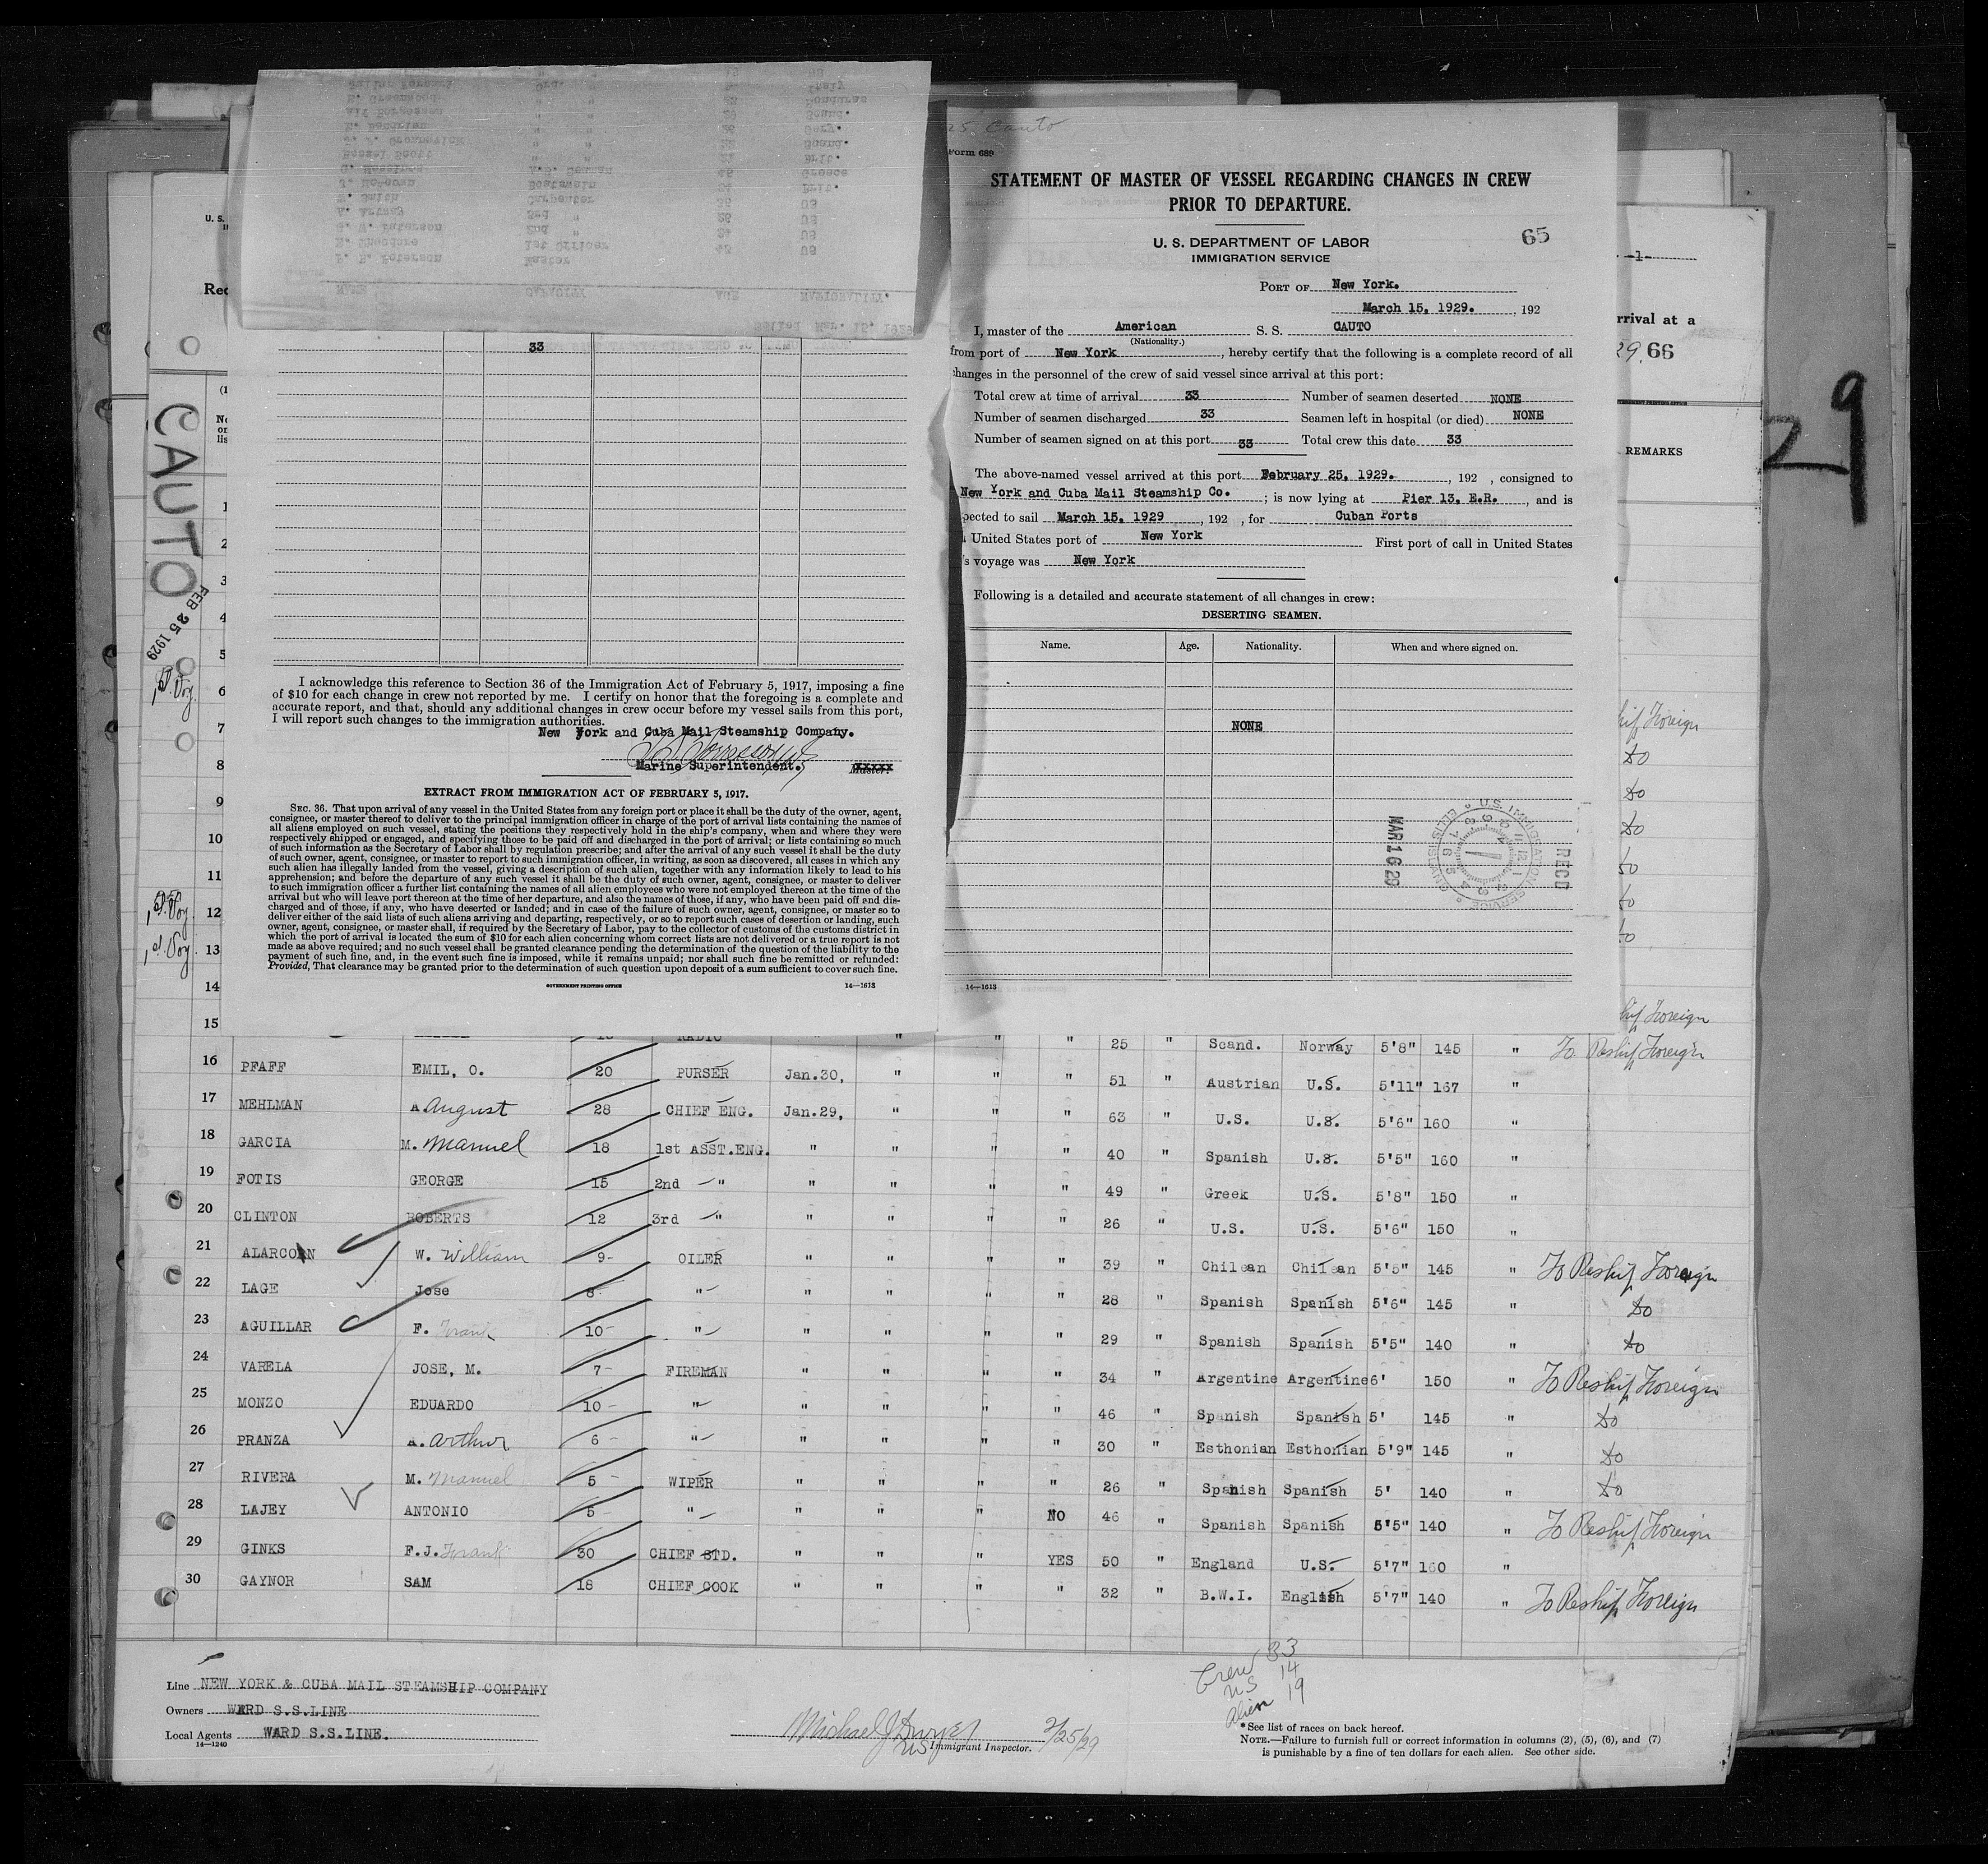 25 Cauto
Form 689
STATEMENT OF MASTER OF VESSEL REGARDING CHANGES IN CREW
PRIOR TO DEPARTURE.
U. S. DEPARTMENT OF LABOR
IMMIGRATION SERVICE
65
PORT OF New York.
March 15, 1929. , 192
I, master of the American S. S. CAUTO
(Nationality.)
from port of New York, hereby certify that the following is a complete record of all
changes in the personnel of the crew of said vessel since arrival at this port:
Total crew at time of arrival 33 Number of seamen deserted NONE
Number of seamen discharged 33 Seamen left in hospital (or died) NONE
Number of seamen signed on at this port 33 Total crew this date 33
The above-named vessel arrived at this port February 25, 1929. , 192 , consigned to
New York and Cuba Mail Steamship Co. ; is now lying at Pier 13, E.R. , and is
pected to sail March 15, 1929 , 192 , for Cuban Ports
United States port of New York First port of call in United States
's voyage was New York
Following is a detailed and accurate statement of all changes in crew:
DESERTING SEAMEN.
Name. Age. Nationality. When and where signed on.
NONE
U.S. IMMIGRATION SERVICE ELLIS ISLAND
MAR 16 29
REC'D
14—1613
SAILED Mar. 15, 1929
NAME CAPACITY AGE NATIONALITY.
P. B. Peterson Master 43 US
33
I acknowledge this reference to Section 36 of the Immigration Act of February 5, 1917, imposing a fine
of $10 for each change in crew not reported by me. I certify on honor that the foregoing is a complete and
accurate report, and that, should any additional changes in crew occur before my vessel sails from this port,
I will report such changes to the immigration authorities.
New York and Cuba Mail Steamship Company.
Marine Superintendent. Master.
EXTRACT FROM IMMIGRATION ACT OF FEBRUARY 5, 1917.
SEC. 36. That upon arrival of any vessel in the United States from any foreign port or place it shall be the duty of the owner, agent,
consignee, or master thereof to deliver to the principal immigration officer in charge of the port of arrival lists containing the names of
all aliens employed on such vessel, stating the positions they respectively hold in the ship's company, when and where they were
respectively shipped or engaged, and specifying those to be paid off and discharged in the port of arrival; or lists containing so much
of such information as the Secretary of Labor shall by regulation prescribe; and after the arrival of any such vessel it shall be the duty
of such owner, agent, consignee, or master to report to such immigration officer, in writing, as soon as discovered, all cases in which any
such alien has illegally landed from the vessel, giving a description of such alien, together with any information likely to lead to his
apprehension; and before the departure of any such vessel it shall be the duty of such owner, agent, consignee, or master to deliver
to such immigration officer a further list containing the names of all alien employees who were not employed thereon at the time of the
arrival but who will leave port thereon at the time of her departure, and also the names of those, if any, who have been paid off and dis-
charged and of those, if any, who have deserted or landed; and in case of the failure of such owner, agent, consignee, or master so to
deliver either of the said lists of such aliens arriving and departing, respectively, or so to report such cases of desertion or landing, such
owner, agent, consignee, or master shall, if required by the Secretary of Labor, pay to the collector of customs of the customs district in
which the port of arrival is located the sum of $10 for each alien concerning whom correct lists are not delivered or a true report is not
made as above required; and no such vessel shall be granted clearance pending the determination of the question of the liability to the
payment of such fine, and, in the event such fine is imposed, while it remains unpaid; nor shall such fine be remitted or refunded:
Provided, That clearance may be granted prior to the determination of such question upon deposit of a sum sufficient to cover such fine.
GOVERNMENT PRINTING OFFICE 14—1613
U. S.
Rec
CAUTO
FEB 25 1929
1st Voy.
1st Voy.
1st Voy.
-1-
rrival at a
29. 66
REMARKS
29
hip Foreign
do
do
do
do
do
do
hip Foreign
1
2
3
4
5
6
7
8
9
10
11
12
13
14
15 RADIO " " " " 25 " Scand. Norway 5'8" 145 " To Reship Foreign
16 PFAFF EMIL, O. 20 PURSER Jan.30, " " " 51 " Austrian U.S. 5'11" 167 "
17 MEHLMAN A August 28 CHIEF ENG. Jan.29, " " " 63 " U.S. U.S. 5'6" 160 "
18 GARCIA M. Manuel 18 1st ASST.ENG. " " " " 40 " Spanish U.S. 5'5" 160 "
19 FOTIS GEORGE 15 2nd " " " " " 49 " Greek U.S. 5'8" 150 "
20 CLINTON ROBERTS 12 3rd " " " " " 26 " U.S. U.S. 5'6" 150 "
21 ALARCON W. William 9 OILER " " " " 39 " Chilean Chilean 5'5" 145 " To Reship Foreign
22 LAGE Jose 8 " " " " " 28 " Spanish Spanish 5'6" 145 " do
23 AGUILLAR F. Frank 10 " " " " " 29 " Spanish Spanish 5'5" 140 " do
24 VARELA JOSE, M. 7 FIREMAN " " " " 34 " Argentine Argentine 6' 150 " To Reship Foreign
25 MONZO EDUARDO 10 " " " " " 46 " Spanish Spanish 5' 145 " do
26 PRANZA A. Arthur 6 " " " " " 30 " Esthonian Esthonian 5'9" 145 " do
27 RIVERA M. Manuel 5 WIPER " " " " 26 " Spanish Spanish 5' 140 " do
28 LAJEY ANTONIO 5 " " " " NO 46 " Spanish Spanish 5'5" 140 " To Reship Foreign
29 GINKS F.J. Frank 30 CHIEF STD. " " " YES 50 " England U.S. 5'7" 160 "
30 GAYNOR SAM 18 CHIEF COOK " " " " 32 " B.W.I. English 5'7" 140 " To Reship Foreign
Crew 33
US 14
Alien 19
Line NEW YORK & CUBA MAIL STEAMSHIP COMPANY
Owners WARD S.S.LINE
Local Agents WARD S.S.LINE.
14—1240
Michael J Dwyer 2/25/29
US Immigrant Inspector.
*See list of races on back hereof.
NOTE.—Failure to furnish full or correct information in columns (2), (5), (6), and (7)
is punishable by a fine of ten dollars for each alien. See other side.